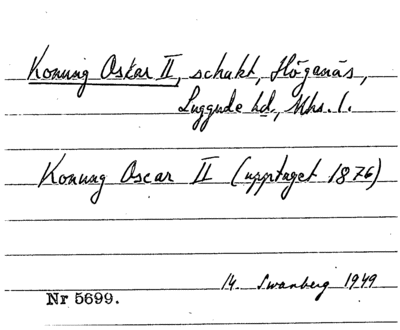 Konung Oskar II, schakt, Höganäs,
Luggude hd, Mhs. l.
Konung Oscar II (upptaget 1876)
14. Swanberg 1949
Nr 5699.